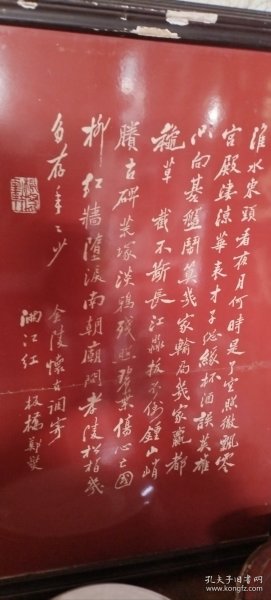 淮水東頭看夜月何時是了空照徹飄零
宮殿淒涼華表才子總緣杯酒誤英雄
只向碁盤鬧算幾家輸局幾家贏都
龝草 截不斷長江淼拔不倒鐘山峭
賸古碑荒塚淡鴉殘照碧葉傷心亡國
柳紅牆墮淚南朝廟問孝陵松柏幾
多存年〻少
金陵懷古調寄
滿江紅 板橋鄭燮
孔夫子旧书网